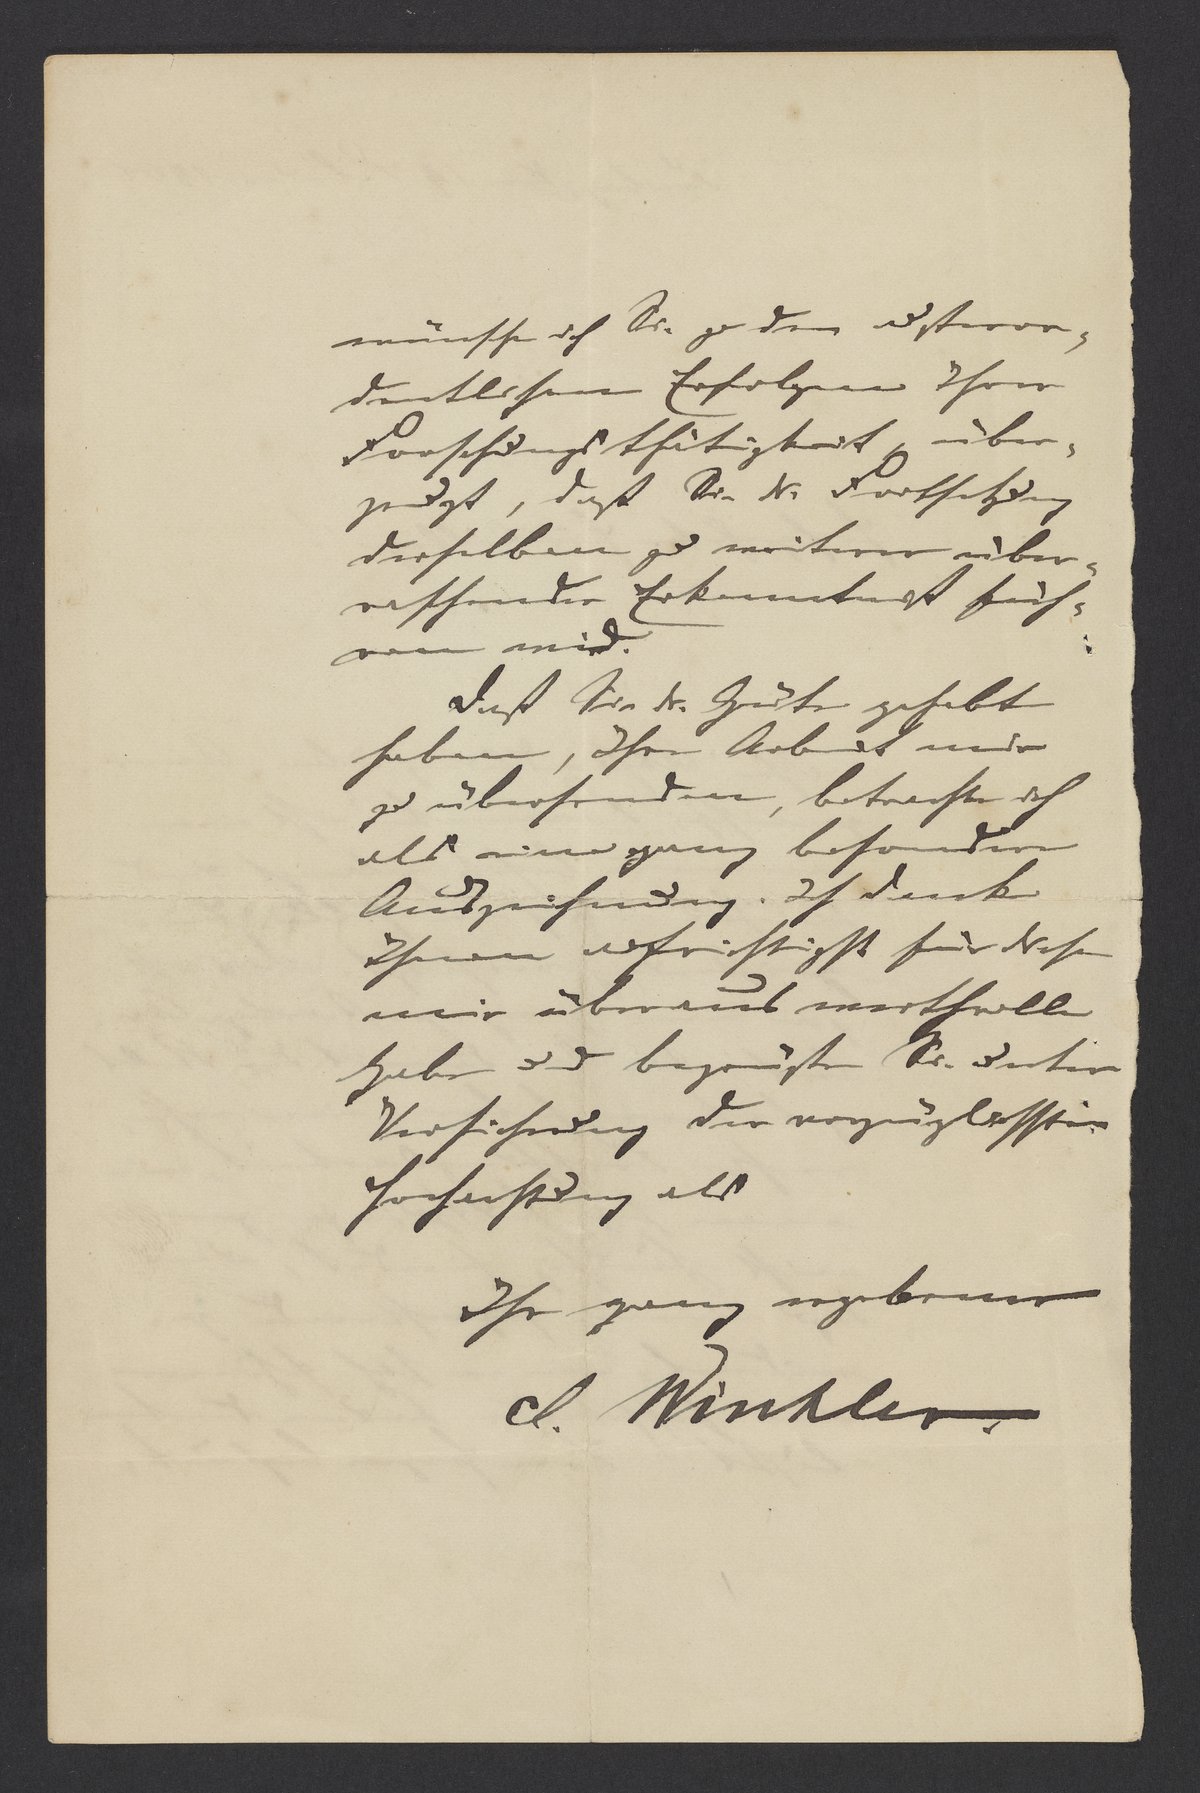 wünsche ich Sie zu den außeror-
dentlichen Erfolgen Ihrer
Forschungsthätigkeit, über-
zeugt, daß Sie die Fortsetzung
derselben zu weiterer über-
raschender Erkenntniß füh-
ren wird.
Daß Sie die Güte gehabt
haben, Ihre Arbeit mir
zu übersenden, betrachte ich
als eine ganz besondere
Auszeichnung. Ich danke
Ihnen aufrichtigst für diese
mir überaus werthvolle
Gabe und begrüße Sie unter
Versicherung der vorzüglichsten
Hochachtung als
Ihr ganz ergebener
Cl. Winkler.